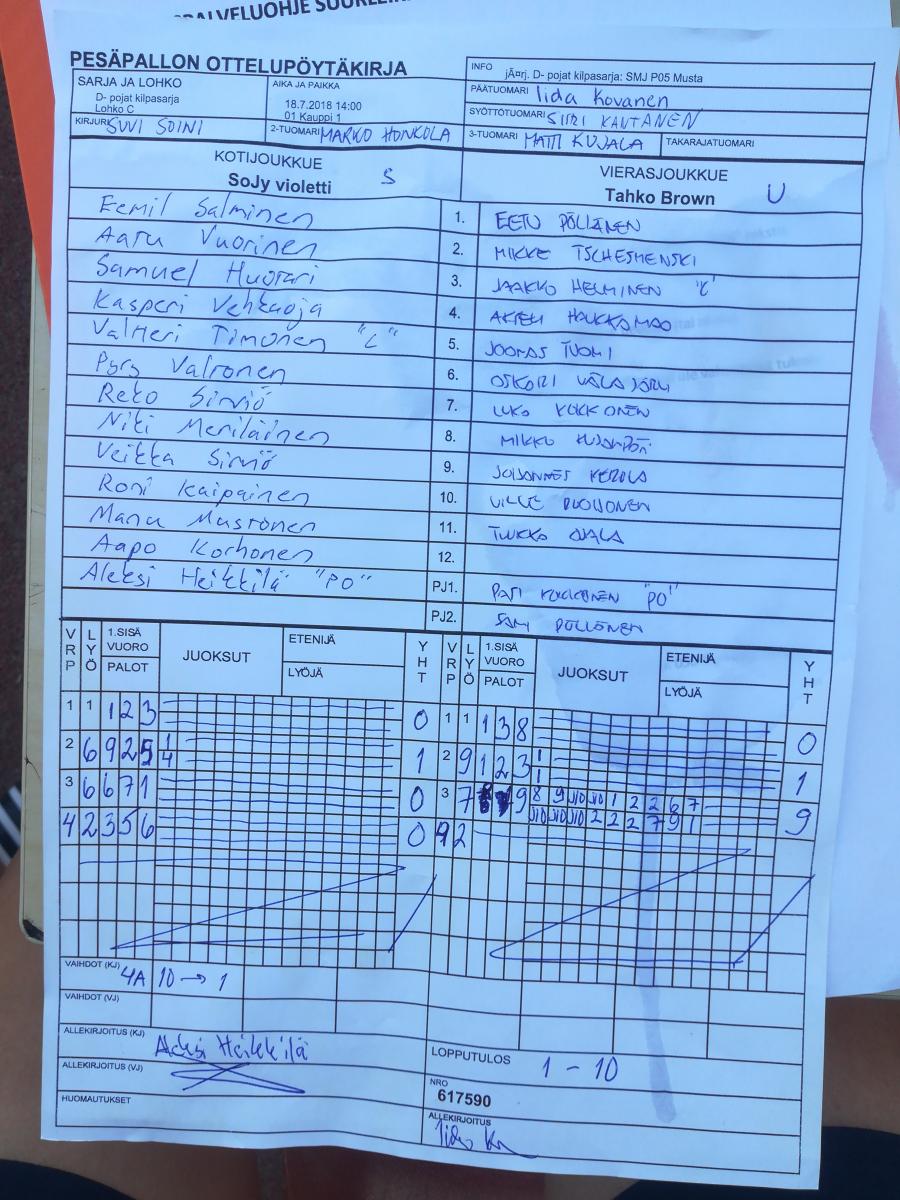 PALVELUOHJE
PESÄPALLON OTTELUPÖYTÄKIRJA
INFO jÃ¤rj. D- pojat kilpasarja: SMJ P05 Musta
SARJA JA LOHKO
D- pojat kilpasarja
Lohko C
AIKA JA PAIKKA
18.7.2018 14:00
01 Kauppi 1
PÄÄTUOMARI Iida Kovanen
SYÖTTÖTUOMARI SIIRI KANTANEN
KIRJURI SUVI SOINI
2-TUOMARI MARKO HONKOLA
3-TUOMARI MATTI KUJALA
TAKARAJATUOMARI
KOTIJOUKKUE
SoJy violetti S
VIERASJOUKKUE
Tahko Brown U
Eemil Salminen 1. EETU PÖLLÄNEN
Aaru Vuorinen 2. MIKKE TSCHESMENSKI
Samuel Huotari 3. JAAKKO HELMINEN "C"
Kasperi Vehkaoja 4.
Valtteri Timonen "C" 5. JOONAS TUOMI
Pyry Valtonen 6. OSKARI VÄLÄJÄRVI
Reko Sirviö 7. KUKKONEN
Niki Meriläinen 8. MIKKO
Veikka Sirviö 9. JOHANNES KEROLA
Roni Kaipainen 10. VILLE
Manu Mustonen 11. TUUKKA OJALA
Aapo Korhonen 12.
Aleksi Heikkilä "PO" PJ1. PASI KUKKONEN "PO"
PJ2. SAMI PÖLLÖNEN
VRP LYÖ 1.SISÄ VUORO PALOT JUOKSUT ETENIJÄ LYÖJÄ YHT
VRP LYÖ 1.SISÄ VUORO PALOT JUOKSUT ETENIJÄ LYÖJÄ YHT
1 1 1 2 3 0 1 1 1 3 8 0
2 6 9 2 5 1 4 1 2 9 1 2 3 1 1 1
3 6 6 7 1 0 3 7 9 8 9 J10 J10 1 2 2 6 7 9
J10 J10 J10 2 2 2 7 9 1
4 2 3 5 6 0 4 2
VAIHDOT (KJ) 4A 10 → 1
VAIHDOT (VJ)
ALLEKIRJOITUS (KJ) Aleksi Heikkilä
LOPPUTULOS 1 - 10
ALLEKIRJOITUS (VJ)
NRO
617590
HUOMAUTUKSET
ALLEKIRJOITUS